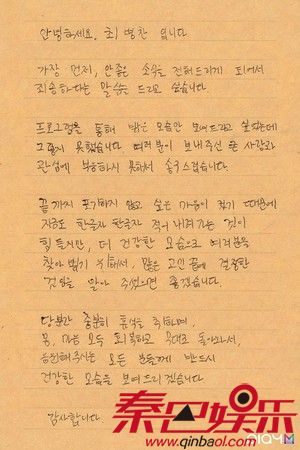 안녕하세요. 최병찬 입니다
가장 먼저, 안좋은 소식을 전해드리게 되어서
죄송하다는 말씀을 드리고 싶습니다
프로그램을 통해 밝은 모습만 보여드리고 싶었는데
그렇지 못했습니다 여러분이 보내주신 큰 사랑과
관심에 보답하지 못해서 송구스럽습니다.
끝까지 포기하지 않고 싶은 마음이 컸기 때문에
지금도 한글자 한글자 적어 내려가는 것이
힘들지만, 더 건강한 모습으로 여러분을
찾아 뵙기 위해서, 많은 고민 끝에 결정한
것임을 알아 주셨으면 좋겠습니다.
당분간 충분히 휴식을 취하며,
몸, 마음 모두 회복하고 무대로 돌아와서,
응원해주시는 모든 분들께 반드시
건강한 모습을 보여드리겠습니다
감사합니다
秦巴娱乐
www.qinbaol.com